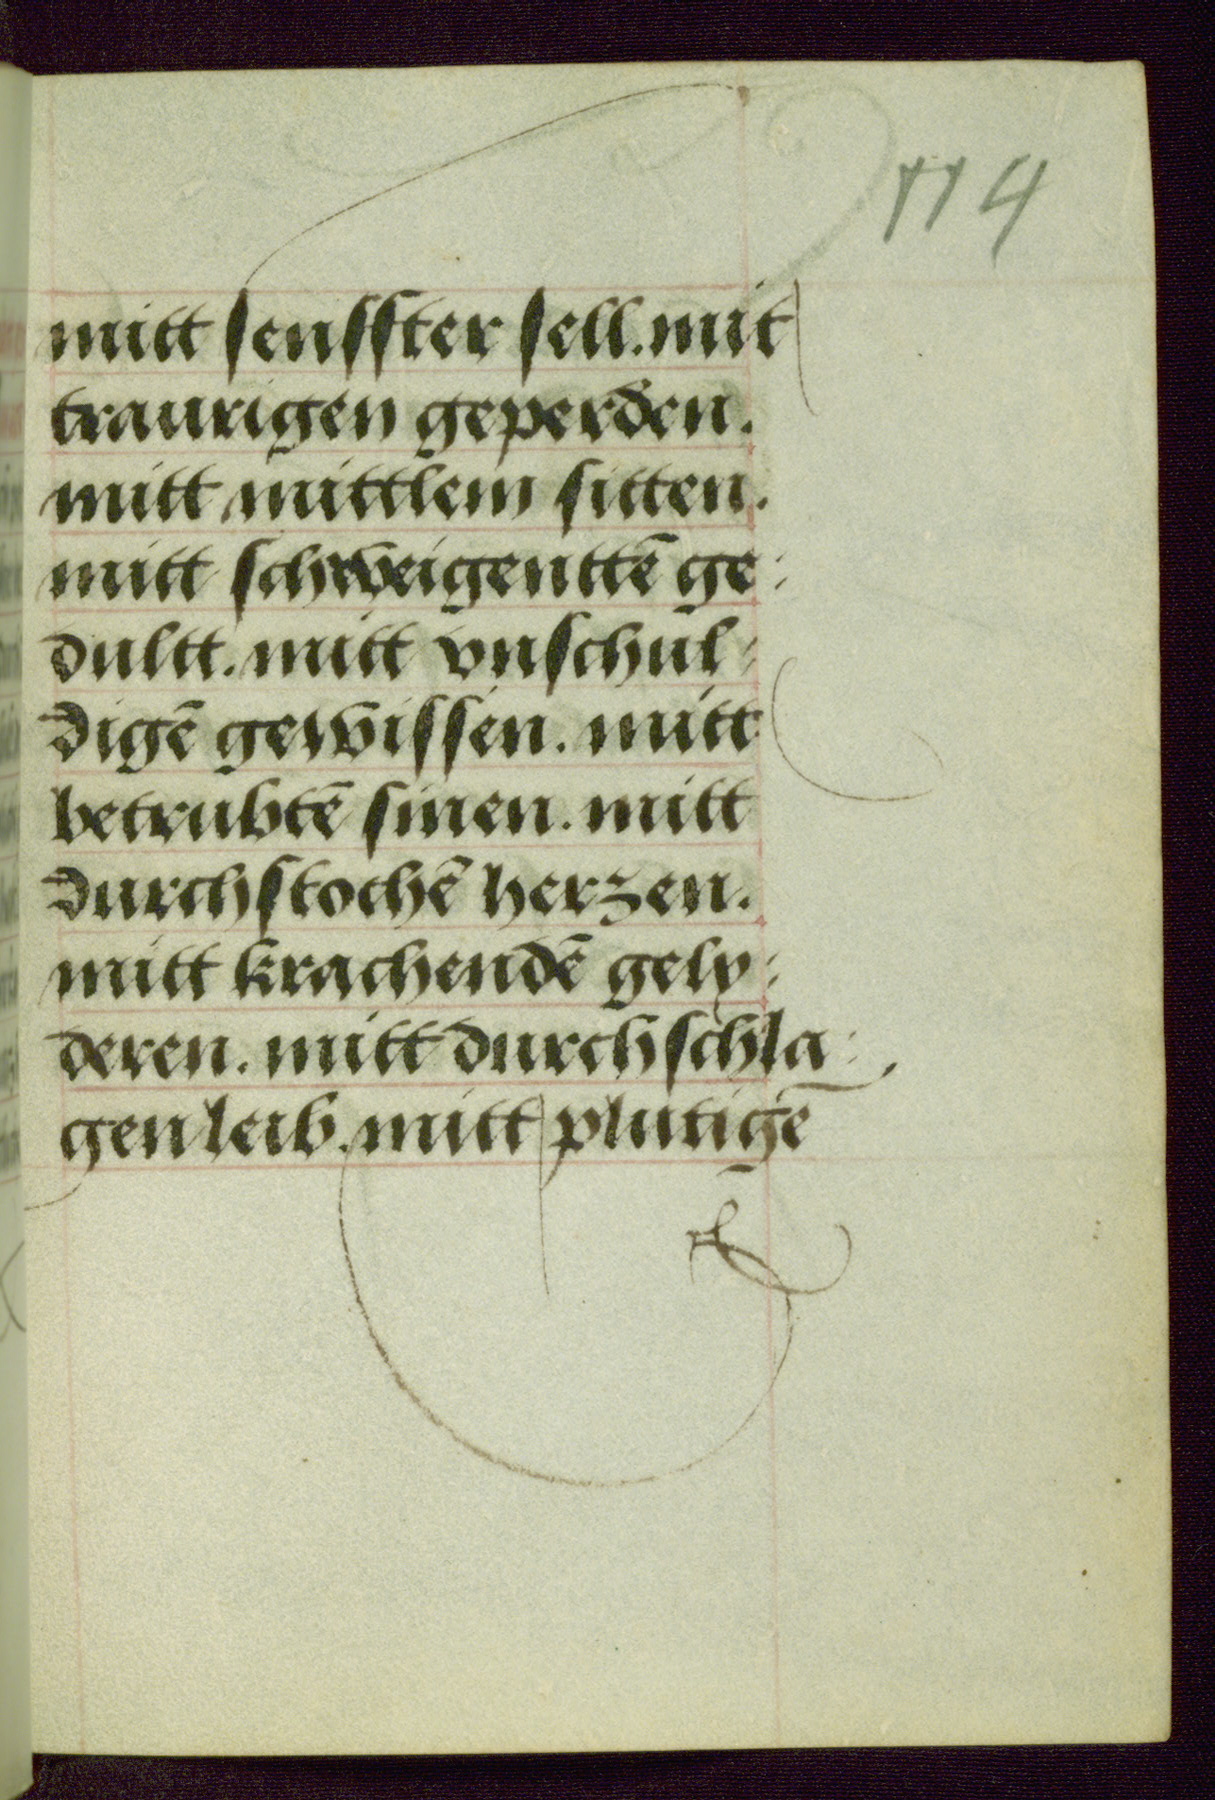 114
mitt senffter sell. mit
traurigen geperden.
mitt mittlem sitten.
mitt schweigenttē ge:
dultt. mitt vnschul:
digē gewissen. mitt
betrubtē sinen. mitt
durchstochē herzen.
mitt krachendē gely:
deren. mitt durchschla:
gen leib. mitt plutigē